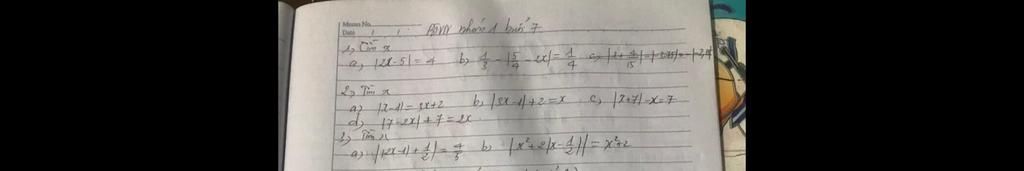 Memo No.
Date / /
BTVN nhóm 1 buổi 7
1, Tìm x
a, |2x-5| = 4 b, 1/3 - |5/4 - 2x| = 1/4 c,
2, Tìm x
a, |x-1| = 3x+2 b, |3x-1|+2=x c, |x+7|-x=7
d, |7-2x|+7=2x
3, Tìm x
a, ||2x-1|+1/2| = 4/5 b, |x²+2|x-1/2|| = x²+2